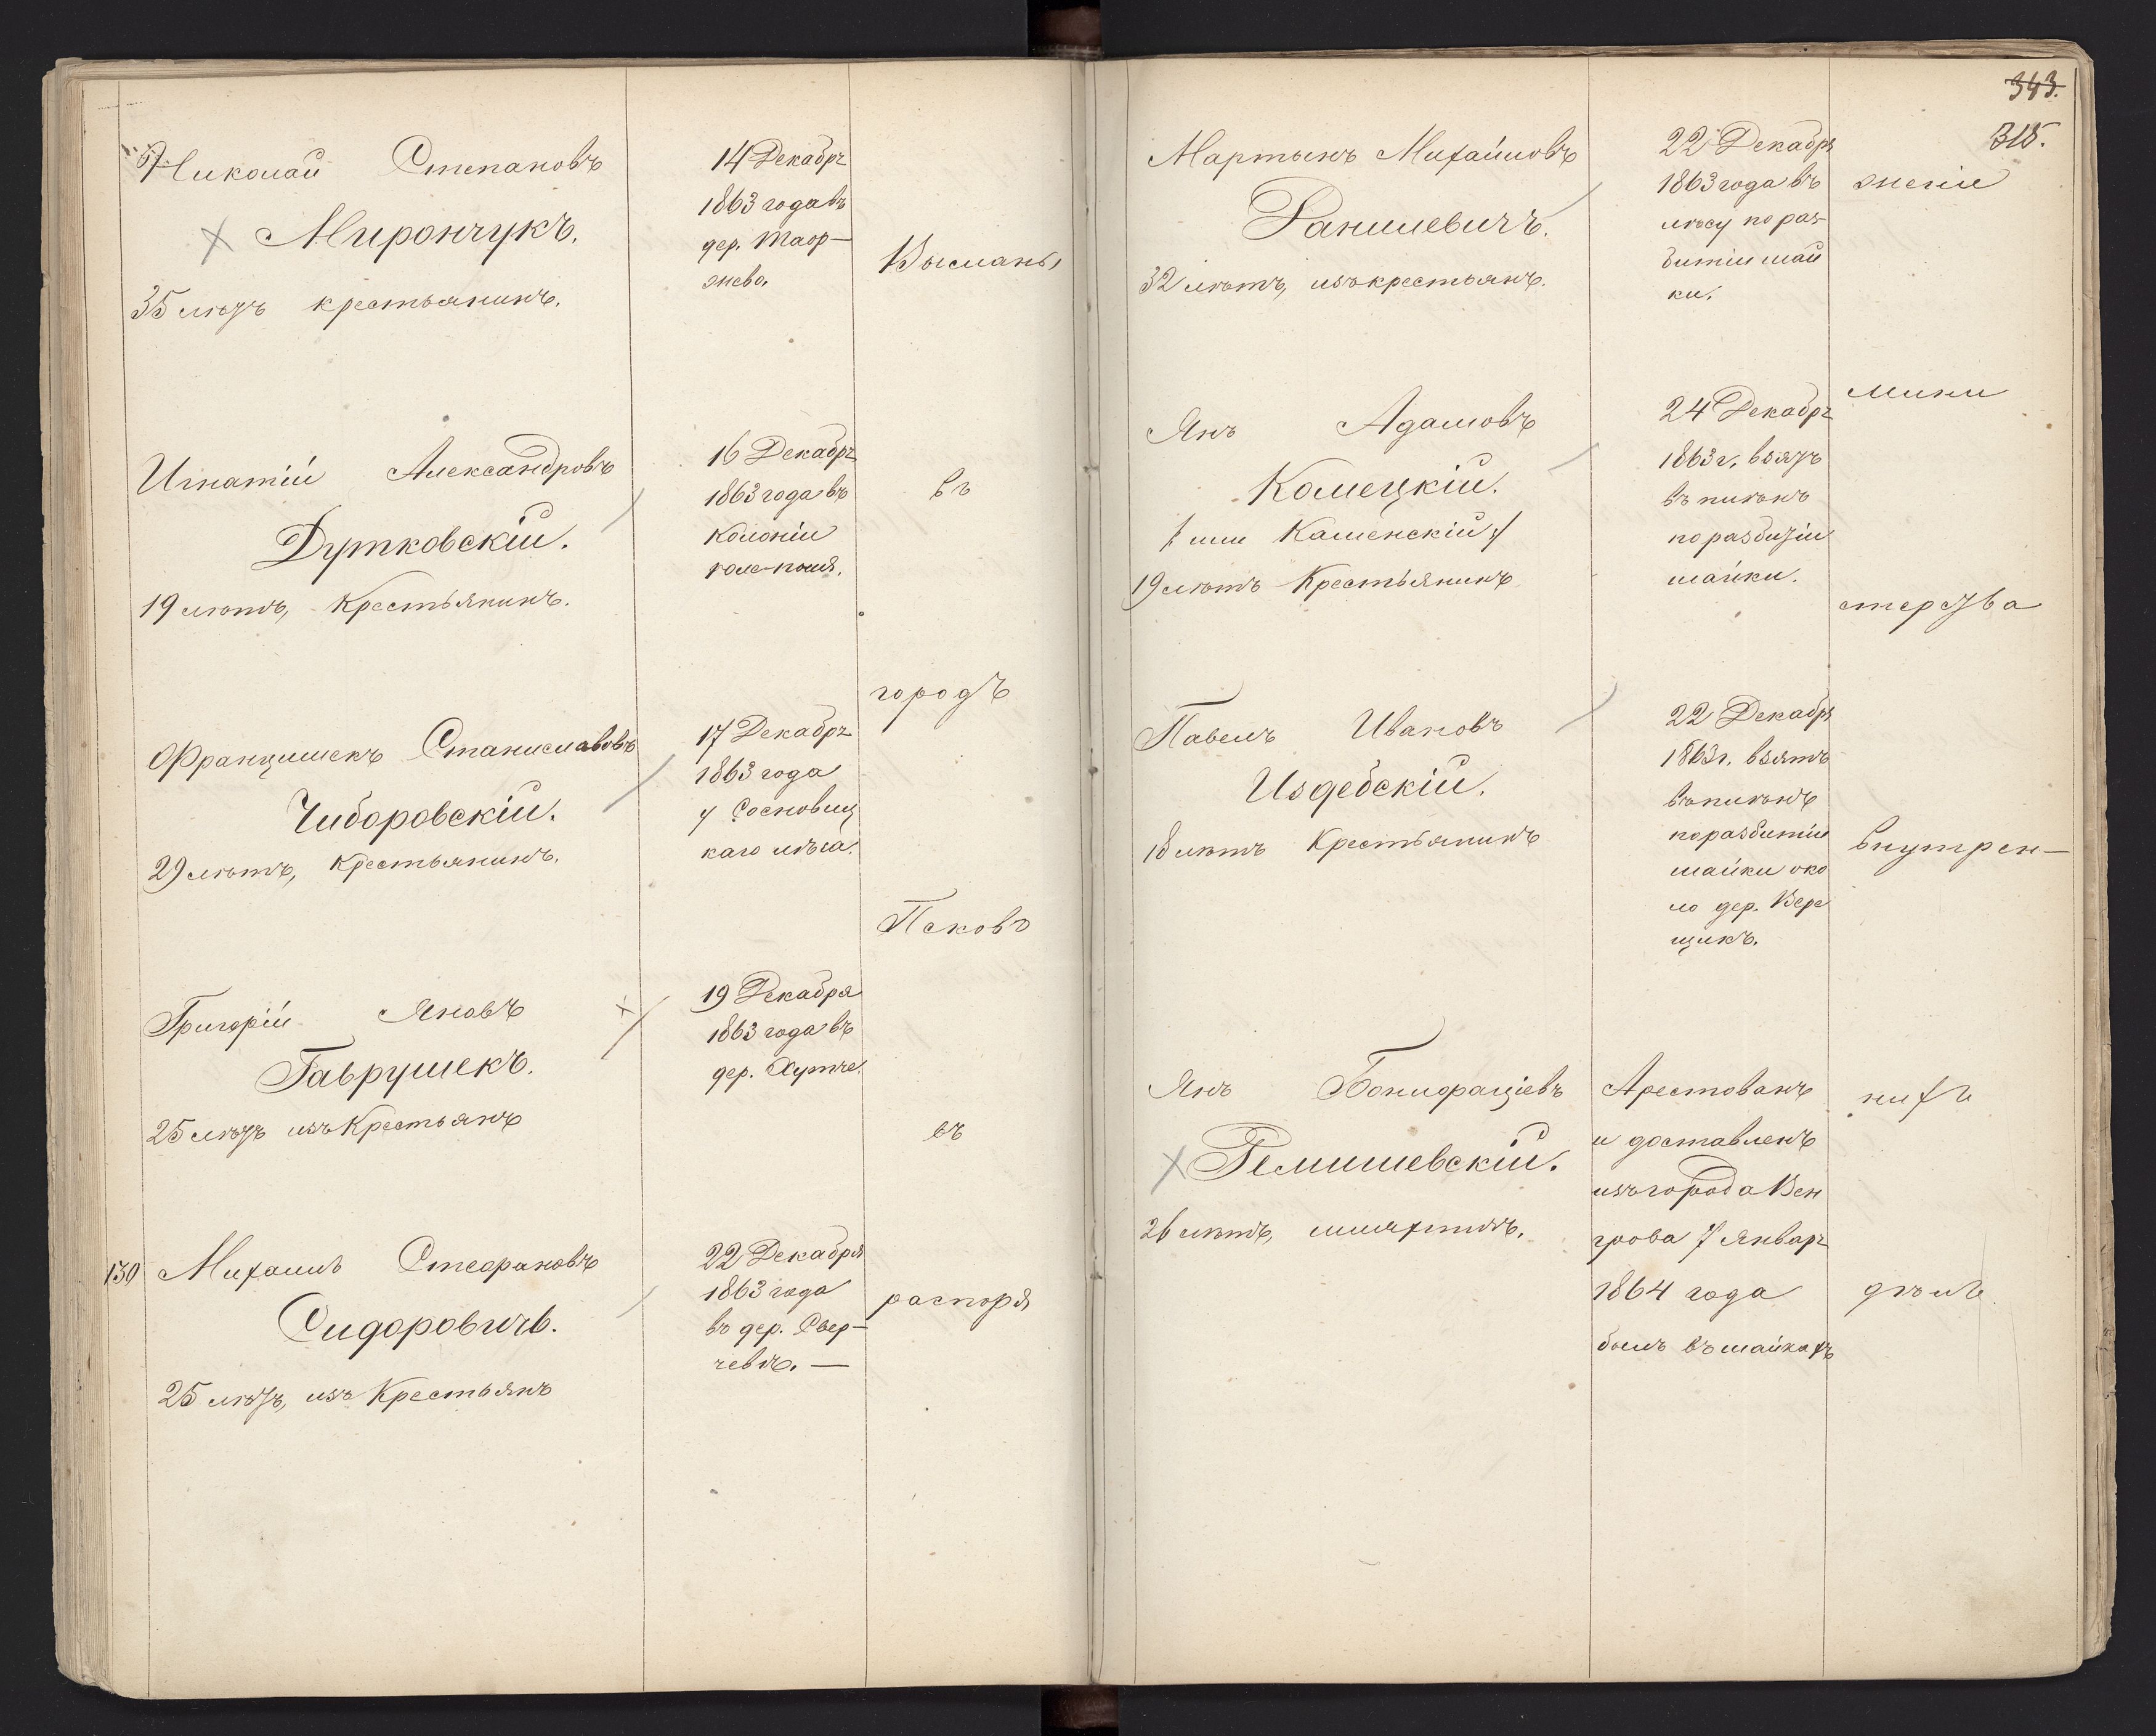 Николай Степановъ
Мирончукъ.
35 лѣтъ крестьянинъ.
14 Декабр.
1863 года въ
дер.
жево.
Высланы
Игнатій Александровъ
Дутковскій.
19 лѣтъ, Крестьянинъ.
16 Декабр.
1863 года въ
Колоніи
въ
Францишекъ Станиславовъ
Чиборовскій.
29 лѣтъ, крестьянинъ.
17 Декабр.
1863 года
у Сосновиц
каго лѣса.
городъ
Псковъ
Григорій Яновъ
Гаврушекъ.
25 лѣтъ изъ Крестьянъ
19 Декабря
1863 года въ
дер. Хутче.
въ
130 Михаилъ Стефановъ
Сидоровичъ.
25 лѣтъ, изъ Крестьянъ
22 Декабря
1863 года
въ дер. Свер-
чевѣ. —
распоря
343.
315.
Мартынъ Михайловъ
32 лѣтъ, изъ крестьянъ.
22 Декабря
1863 года въ
лѣсу по раз-
битіи шай
ки.
женіе
Янъ Адамовъ
Комецкій.
/: или Каменскій :/
19 лѣтъ Крестьянинъ
24 Декабр.
1863 г. взятъ
въ плѣнъ
по разбитіи
шайки.
мини
стерства
Павелъ Ивановъ
Издебскій.
18 лѣтъ Крестьянинъ
22 Декабря
1863 г. взятъ
въ плѣнъ
по разбитіи
шайки око
ло дер. Вере
щикъ.
внутрен-
Янъ Бонифаціевъ
Ремишевскій.
26 лѣтъ, шляхтичъ.
Арестованъ
и доставленъ
изъ города Вен
грова 7 Январ.
1864 года
былъ въ шайкахъ
нихъ
дѣлъ